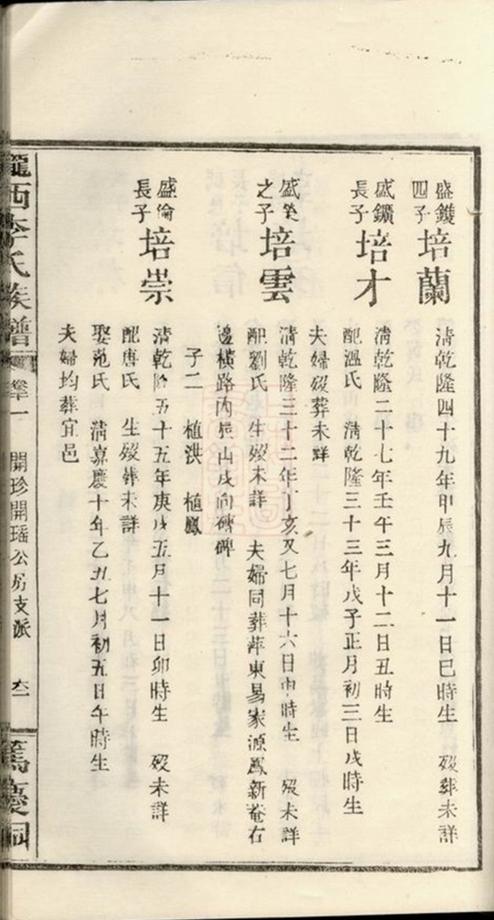 盛鑊四子 培蘭 清乾隆四十九年甲辰九月十一日巳時生 歿葬未詳
盛鑛長子 培才 清乾隆二十七年壬午三月十二日丑時生
配溫氏 清乾隆三十三年戊子正月初三日戌時生
夫婦歿葬未詳
盛 之子 培雲 清乾隆三十二年丁亥又七月十六日申時生 歿未詳
配劉氏 生歿未詳 夫婦同葬萍東易家源鳳新菴右
邊橫路內辰山戌向磚碑
子二 植洪 植鳳
盛倫長子 培崇 清乾隆五十五年庚戌五月十一日卯時生 歿未詳
配唐氏 生歿葬未詳
娶范氏 清嘉慶十年乙丑七月初五日午時生
夫婦均葬宜邑
隴西李氏族譜 卷一 開珍開瑤公房支派 篤慶祠